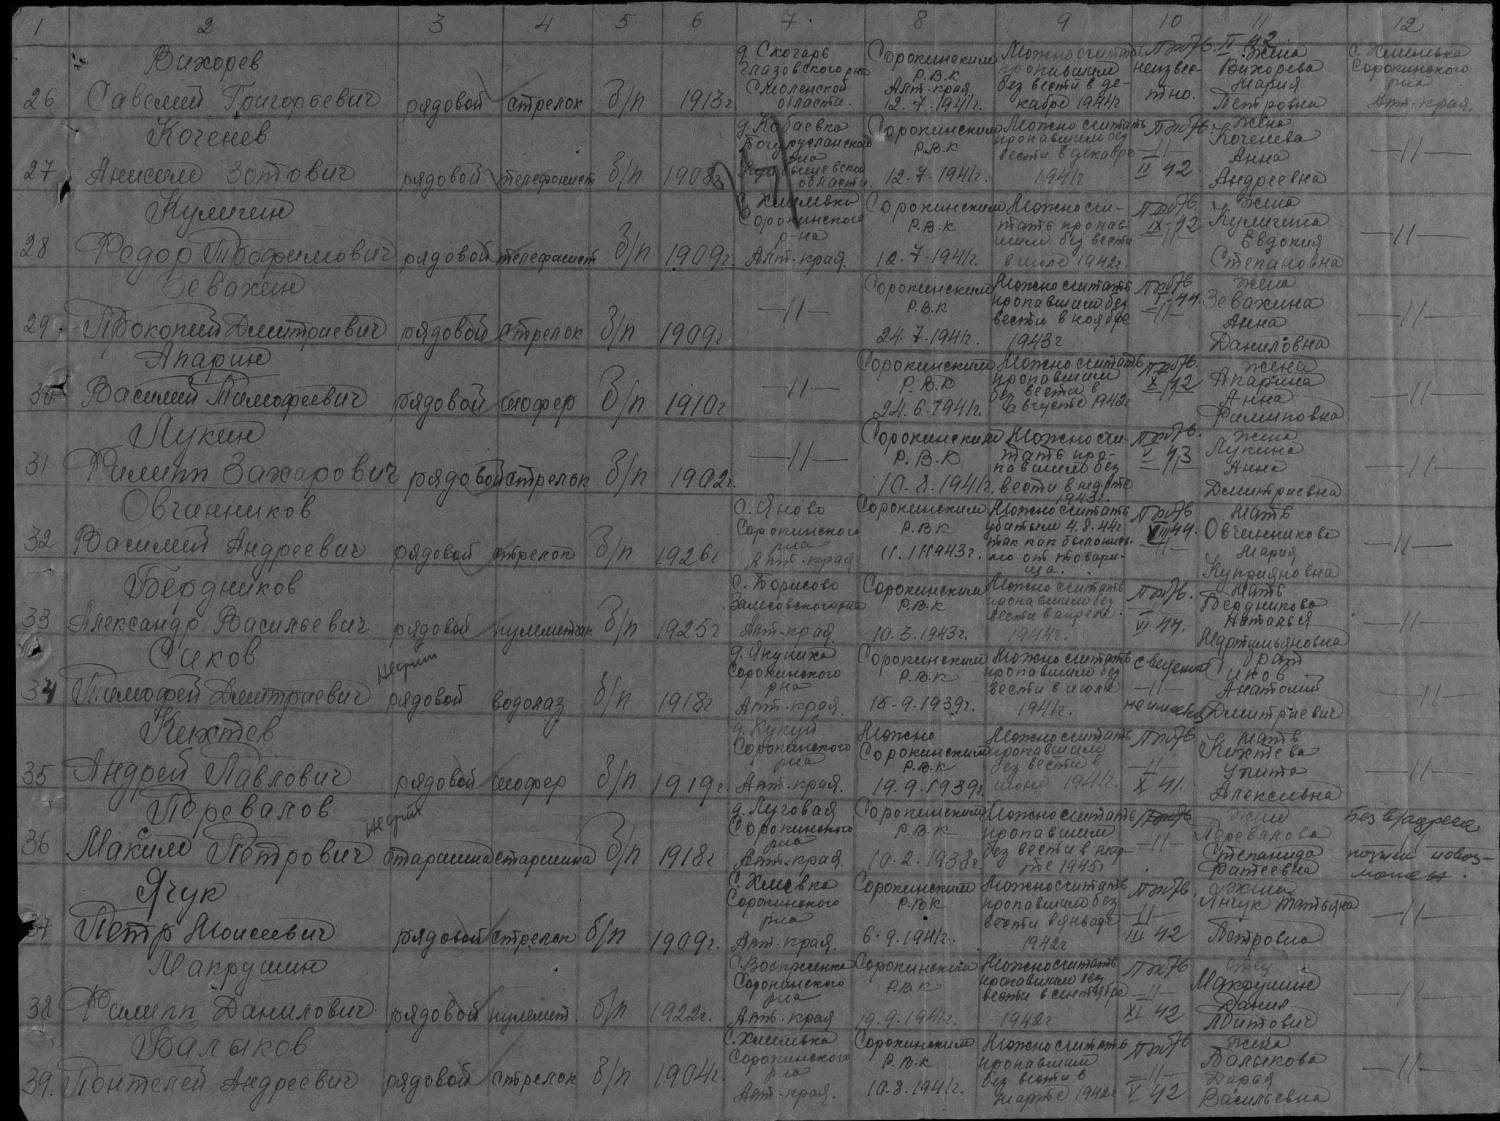 1 2 3 4 5 6 7 8 9 10 11 12
26 Вихорев Савелий Григорьевич рядовой стрелок б/п 1913г д. Скогарь Глазовского р-на Смоленской области. Сорокинским Р.В.К Алт. края 12.7.1941г. Можно считать пропавшим без вести в декабре 1941г II 42 неизвестно. жена Вихорева Мария Петровна с. Хмелевка Сорокинского р-на Алт. края.
27 Коченев Зотович рядовой телефонист б/п 1908г области. Сорокинским Р.В.К 12.7.1941г. Можно считать пропавшим без вести в декабре 1941г —||— II 42 жена Коченева Анна Андреевна —||—
28 Кулигин Федор Трофимович рядовой телефонист б/п 1909г с. Хмелевка Сорокинского р-на Алт. края. Сорокинским Р.В.К 12.7.1941г. Можно считать пропавшим без вести в июле 1942г. IX 42 —||— жена Кулигина Евдокия Степановна —||—
29. Зевакин Прокопий Дмитриевич рядовой стрелок б/п 1909г —||— Сорокинским Р.В.К 24.7.1941г. Можно считать пропавшим без вести в ноябре 1943г 44. —||— жена Зевакина Анна Даниловна —||—
30 Апарин Василий Тимофеевич рядовой шофер б/п 1910г —||— Сорокинским Р.В.К 24.6.1941г. Можно считать пропавшим без вести в августе 1942г X 42 —||— жена Апарина Анна Филиповна —||—
31 Лукин Филипп Захарович рядовой стрелок б/п 1902г. —||— Сорокинским Р.В.К 10.8.1941г. Можно считать пропавшим без вести в марте 1943г. V 43 —||— жена Лукина Анна Дмитриевна —||—
32 Овчинников Василий Андреевич рядовой стрелок б/п 1926г с. Яново Сорокинского р-на Алт. края Сорокинским Р.В.К 1943г. Можно считать убитым 4.8.44г так как было письмо от товарища. VIII 44. —||— мать Овчинникова Мария Куприяновна —||—
33 Бердников Александр Васильевич рядовой пулеметчик б/п 1925г с. Борисово Залесовского р-на Алт. края Сорокинским Р.В.К 10.3.1943г. Можно считать пропавшим без вести в апреле 1944г. —||— VI 44. мать Бердникова Наталья Мартимьяновна —||—
34 Сиков Тимофей Дмитриевич рядовой водолаз б/п 1918г д. Якуниха Сорокинского р-на Алт. края. Сорокинским Р.В.К 15.9.1939г. Можно считать пропавшим без вести в июле 1941г. —||— брат Сиков Анатолий Дмитриевич —||—
35 Кихтев Андрей Павлович рядовой шофер б/п 1919г д. Кукуй Сорокинского р-на Алт. края. Можно Сорокинским Р.В.К 19.9.1939г. Можно считать пропавшим без вести в июне 1941г. —||— X 41. мать Кихтева Алексеевна —||—
36 Перевалов Максим Петрович старшина старшина б/п 1918г д. Луговая Сорокинского р-на Алт. края. Сорокинским Р.В.К 10.2.1938г Можно считать пропавшим без вести в марте 1945г —||— жена Перевалова Степанида Фатеевна Без адреса
37 Ячук Петр Моисеевич рядовой стрелок б/п 1909г. с. Хмелевка Сорокинского р-на Алт. края. Сорокинским Р.В.К 6.9.1941г. Можно считать пропавшим без вести в январе 1942г —||— III 42 жена Янчук Татьяна Петровна —||—
38 Макрушин Филипп Данилович рядовой пулемет. б/п 1922г. Сорокинского р-на Алт. края Сорокинским Р.В.К 19.9.1941г. Можно считать пропавшим без вести в сентябре 1942г —||— XI 42 отец Макрушин Данил Титович —||—
39. Балыков Пантелей Андреевич рядовой стрелок б/п 1904г. с. Хмелевка Сорокинского р-на Алт. края. Сорокинским Р.В.К 10.8.1941г. Можно считать пропавшим без вести в марте 1942г —||— V 42 жена Балыкова Дарья Васильевна —||—